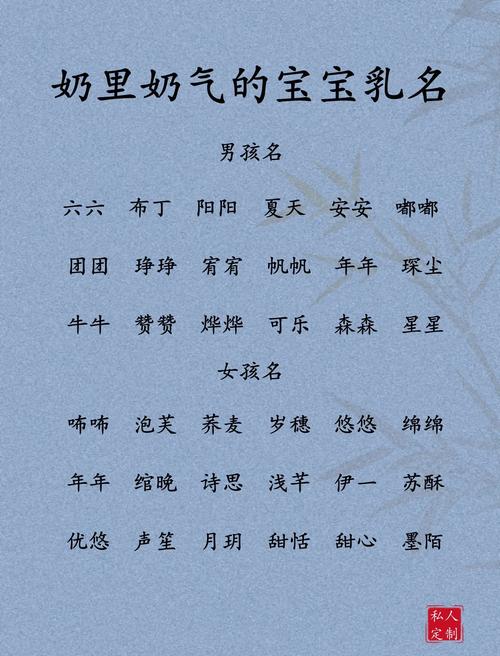 奶里奶气的宝宝乳名
男孩名
六六 布丁 阳阳 夏天 安安 嘟嘟
团团 琤琤 宥宥 帆帆 年年 琛尘
牛牛 赞赞 烨烨 可乐 森森 星星
女孩名
咘咘 泡芙 荞麦 岁穗 悠悠 绵绵
年年 绾晚 诗思 浅芊 伊一 苏酥
优悠 声笙 月玥 甜恬 甜心 墨陌
私人
定制